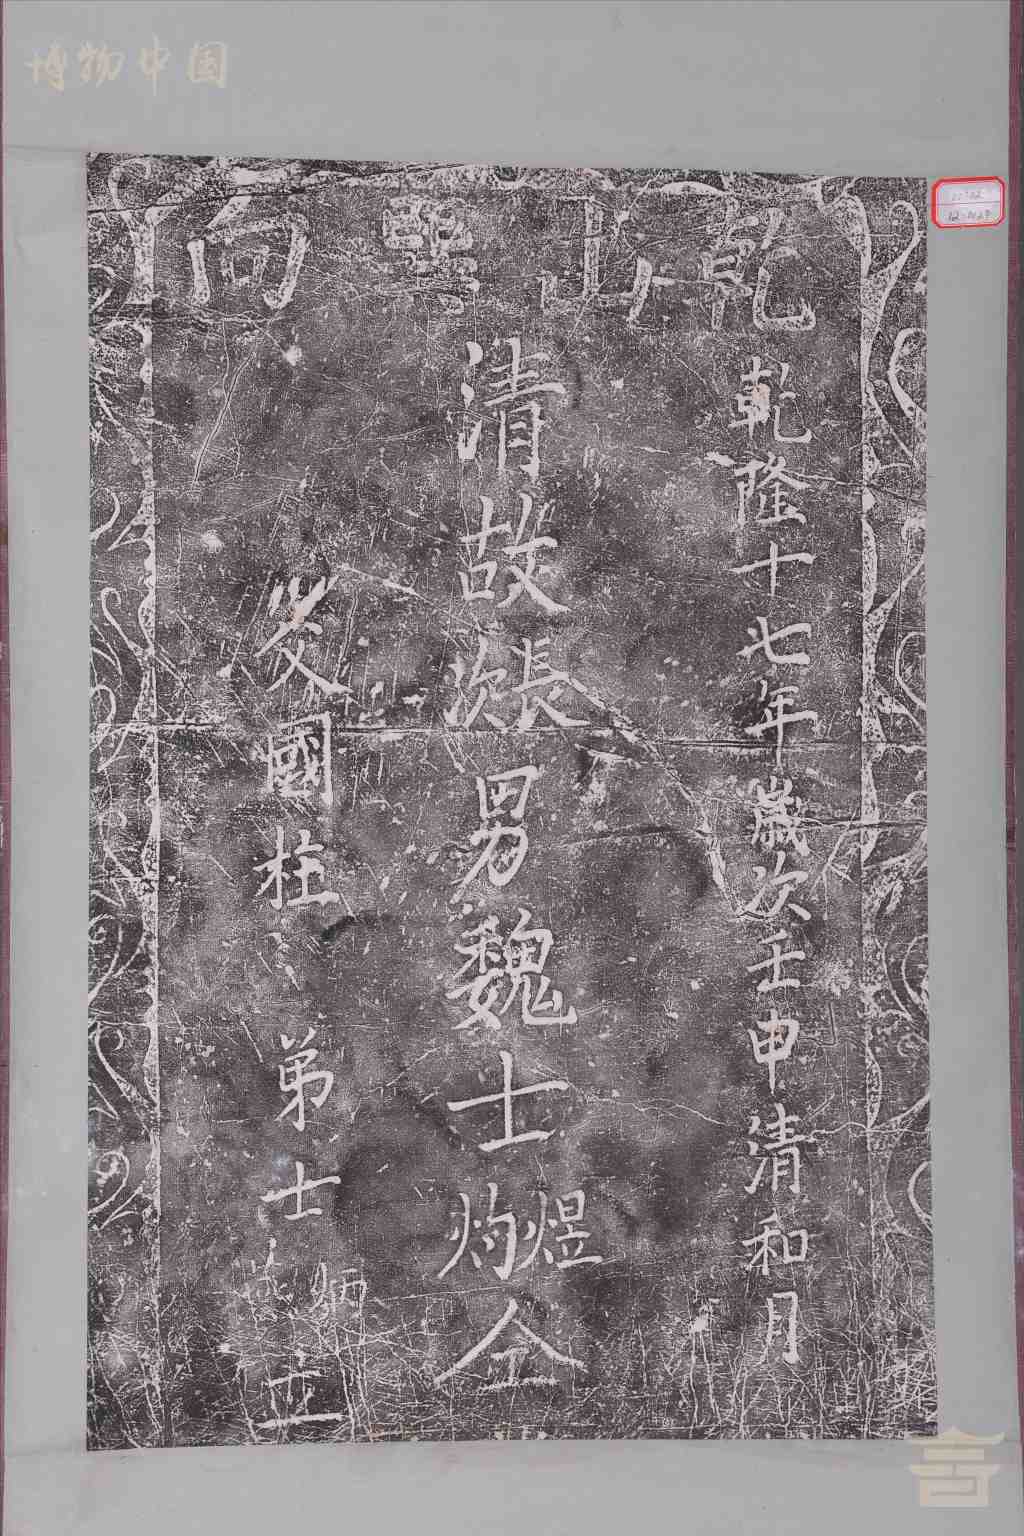 博物中国
乾山巽向
乾隆十七年歲次壬申清和月
清故長次男魏士煜灼仝
父國柱 弟士炳 立